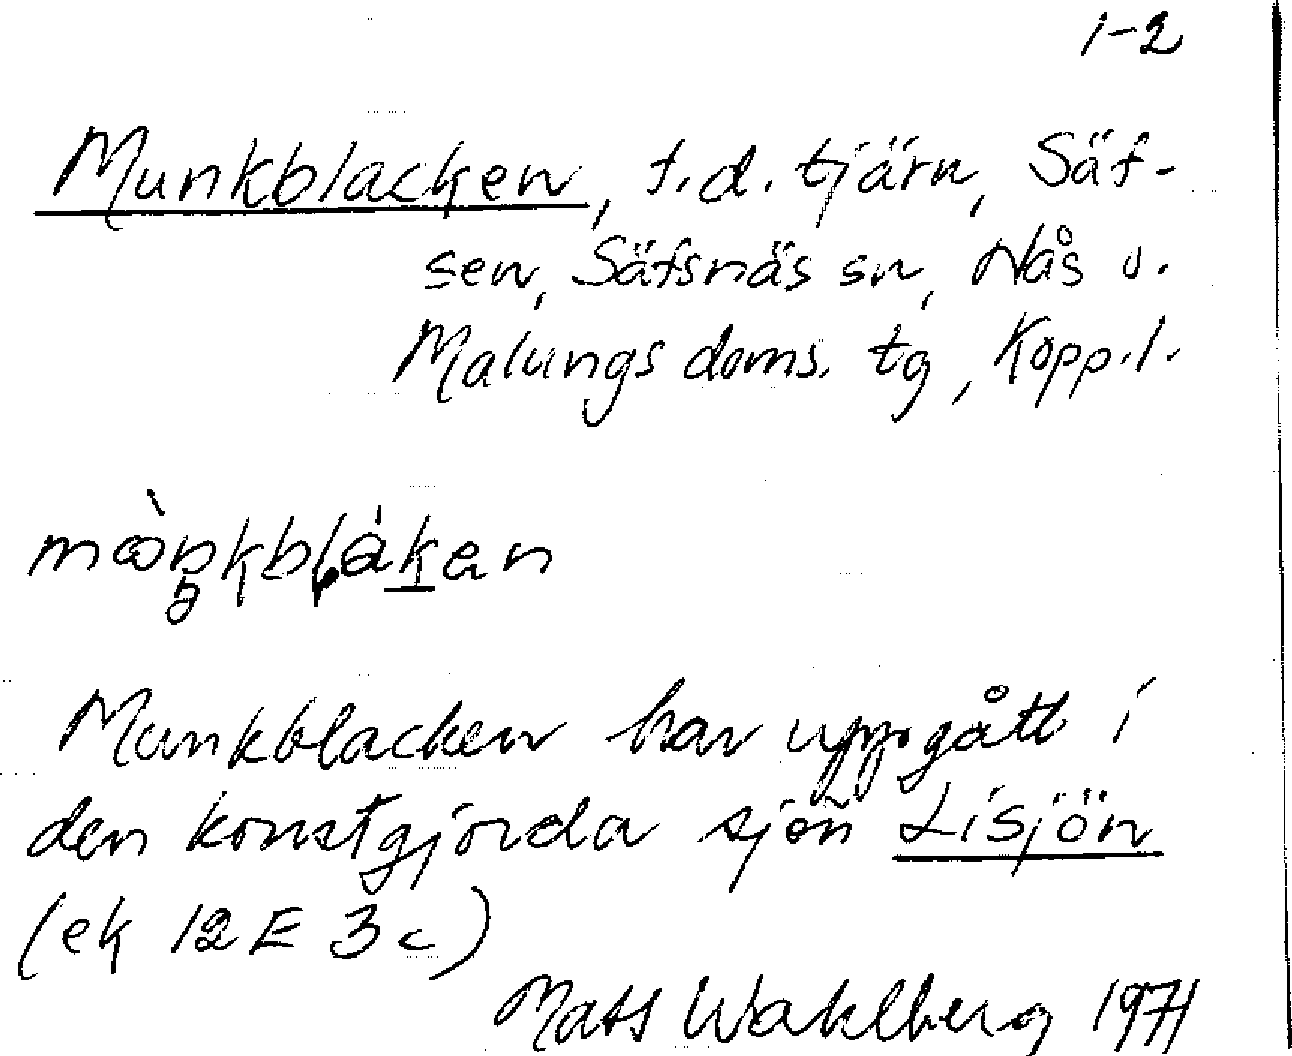 1-2
Munkblacken, f.d. tjärn, Säf-
sen, Säfsnäs sn, Nås o.
Malungs doms. tg, Kopp.l.
mòŋkblákan
Munkblacken har uppgått i
den konstgjorda sjön Lisjön
(ek 12E 3c)
Mats Wahlberg 1971